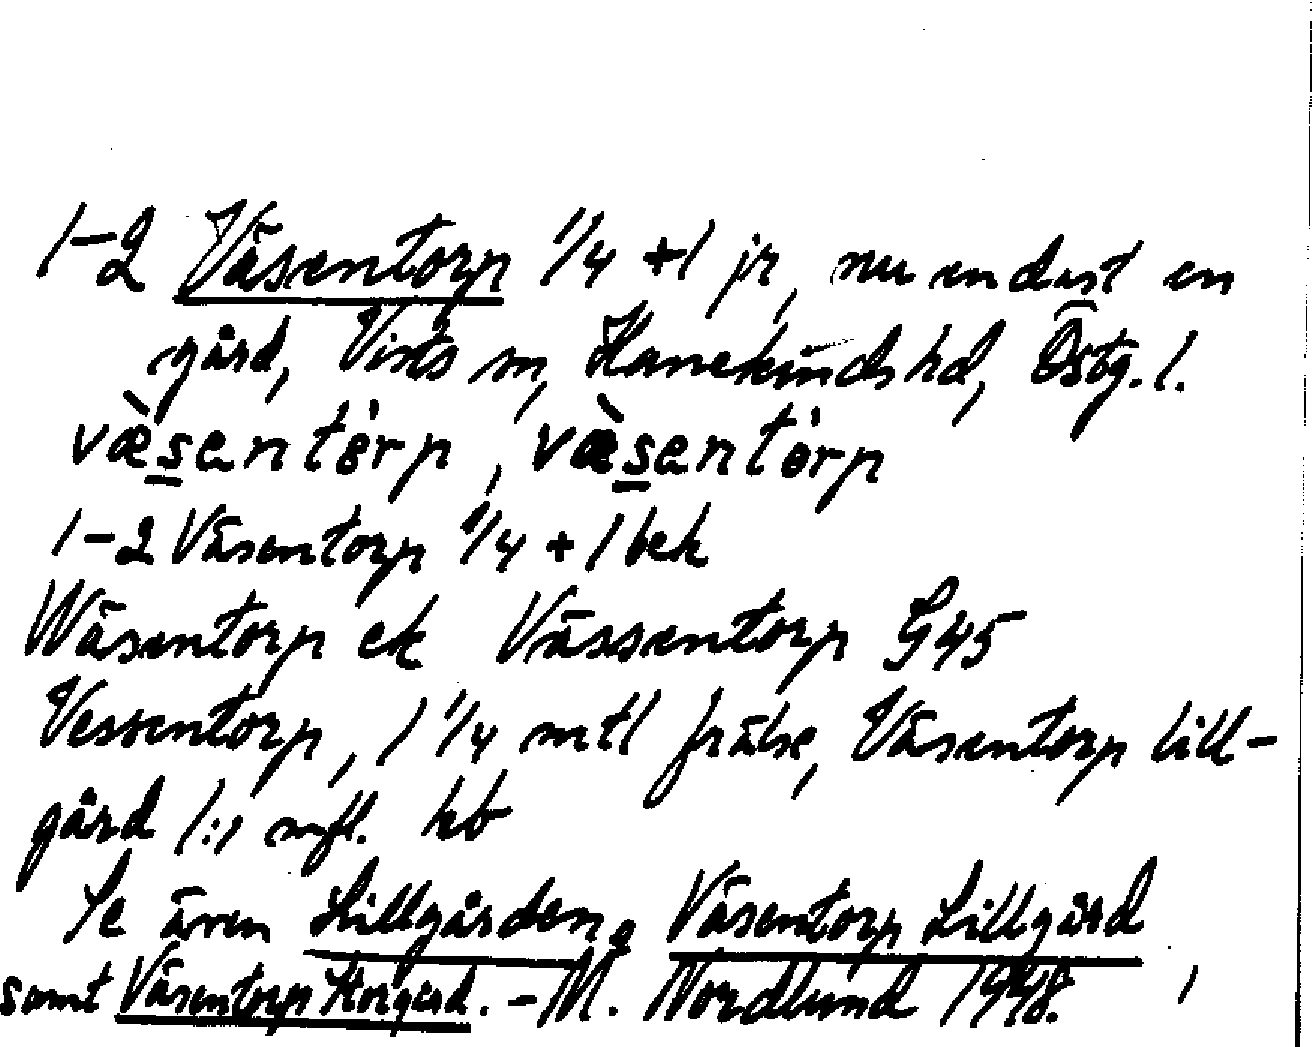 1-2 Väsentorp 1/4 + 1 jr, nu endast en
gård, Vists sn, Hanekinds hd, Östg. l.
væ̀sentórp, væ̀sentórp
1-2 Väsentorp 1/4 + 1 bek
Wäsentorp ek Vässentorp G45
Vessentorp, 1 1/4 mtl frälse, Väsentorp lill-
gård 1:1 mfl. kb
Se även Lillgården, Väsentorp Lillgård
samt Väsentorp Storgård. - M. Nordlund 1948.